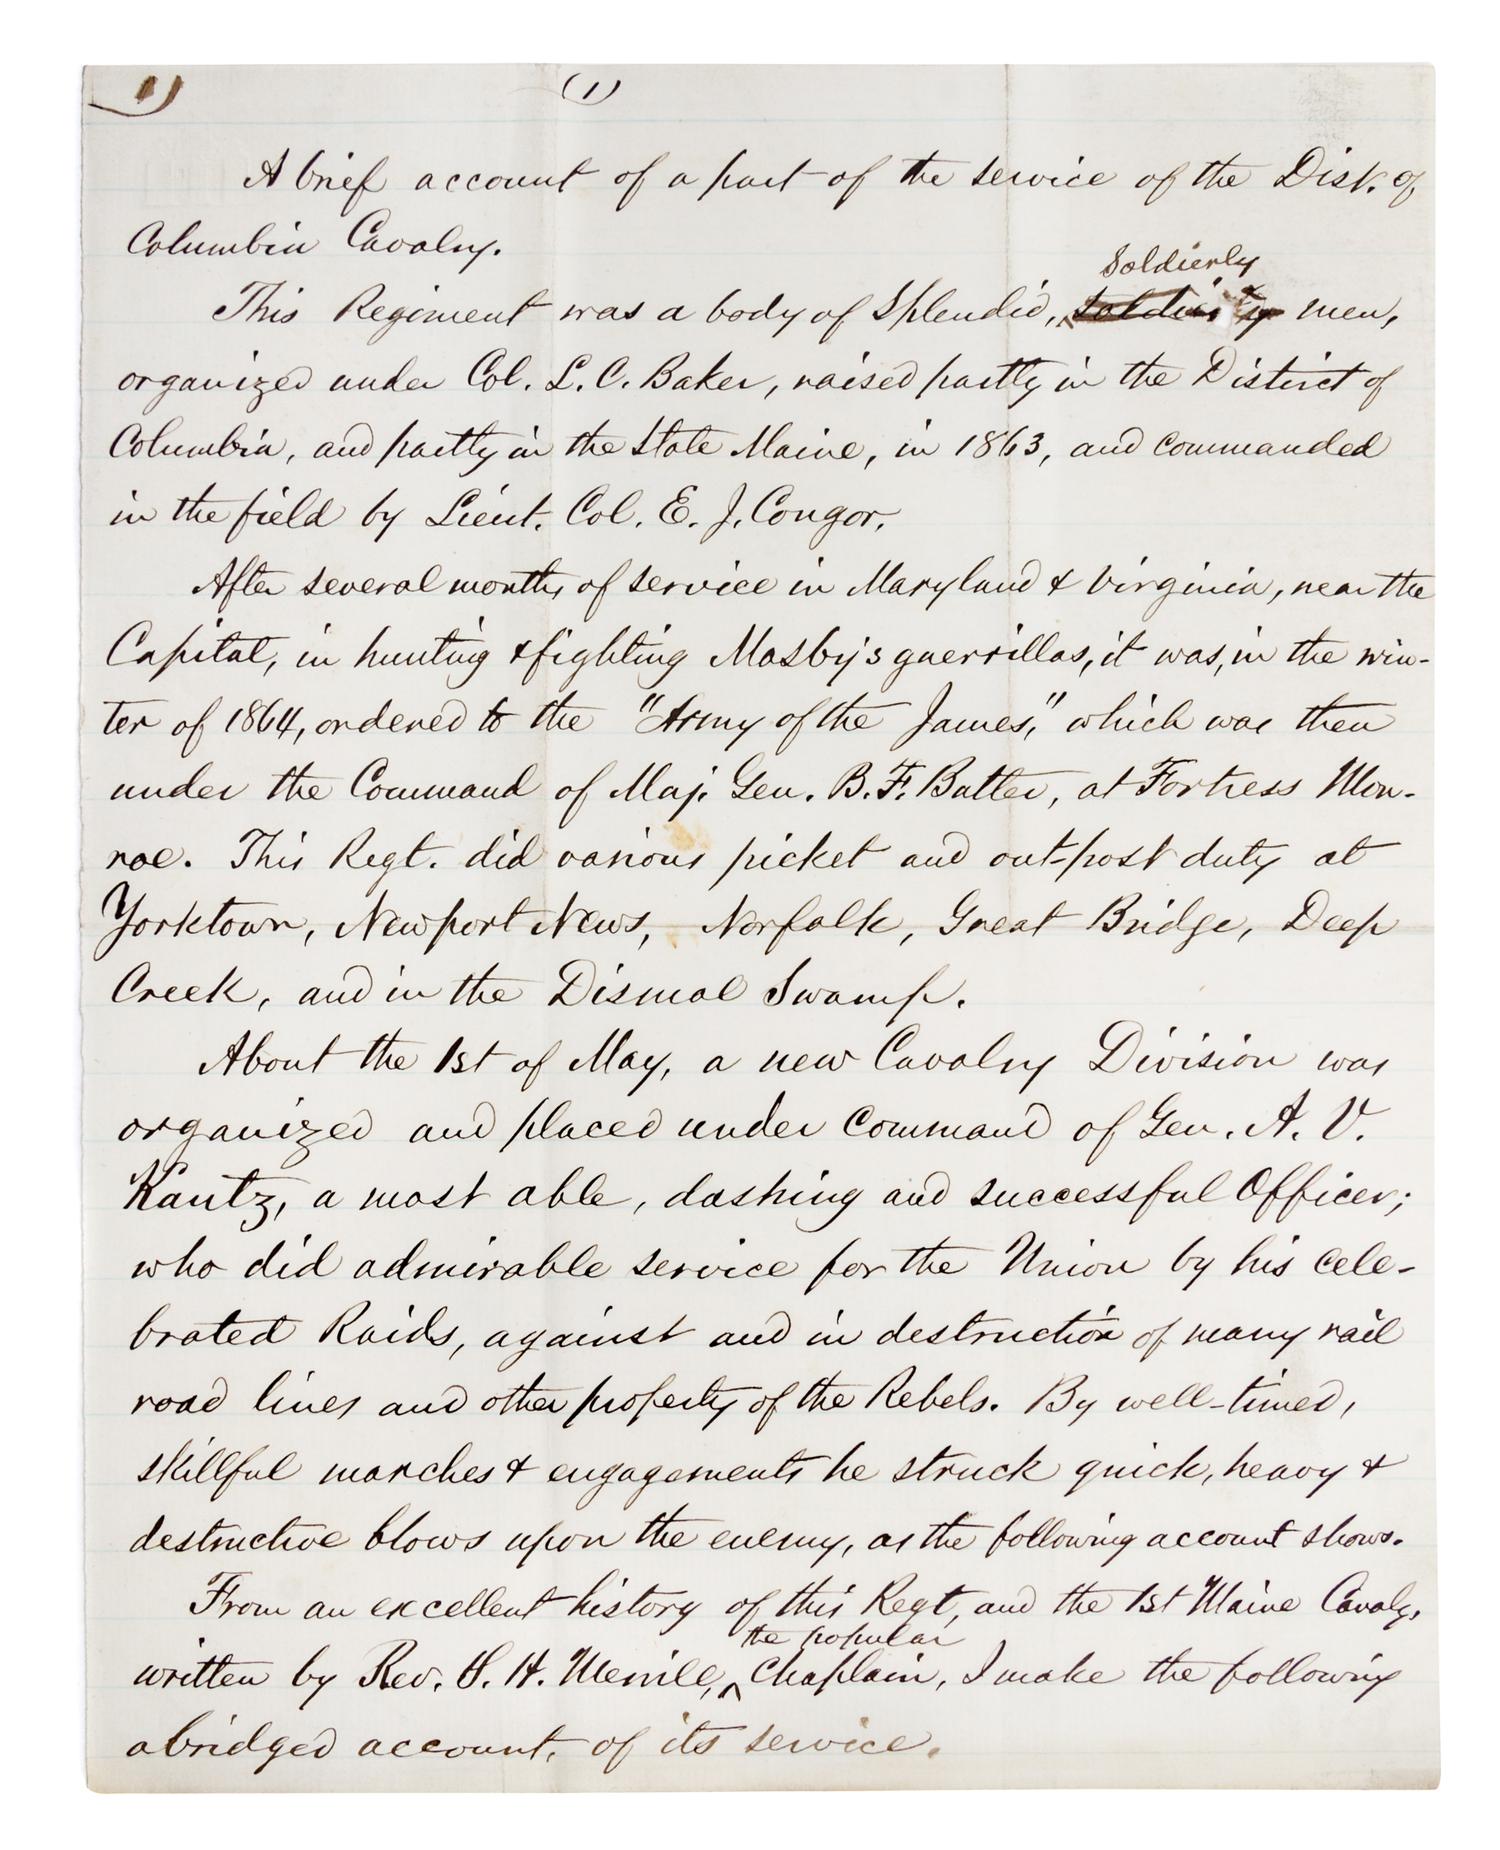 1) (1)
A brief account of a part of the service of the Dist. of
Columbia Cavalry.
Soldierly
This Regiment was a body of splendid, men,
organized under Col. L. C. Baker, raised partly in the District of
Columbia, and partly in the State Maine, in 1863, and commanded
in the field by Lieut. Col. E. J. Congor.
After several months of service in Maryland & Virginia, near the
Capital, in hunting & fighting Mosby's guerrillas, it was, in the win-
ter of 1864, ordered to the "Army of the James," which was then
under the Command of Maj. Gen. B. F. Butler, at Fortress Mon-
roe. This Regt. did various picket and out-post duty at
Yorktown, Newport News, Norfolk, Great Bridge, Deep
Creek, and in the Dismal Swamp.
About the 1st of May, a new Cavalry Division was
organized and placed under command of Gen. A. V.
Kautz, a most able, dashing and successful Officer;
who did admirable service for the Union by his cele-
brated Raids, against and in destruction of many rail
road lines and other property of the Rebels. By well-timed,
skillful marches & engagements he struck quick, heavy &
destructive blows upon the enemy, as the following account shows.
From an excellent history of this Regt, and the 1st Maine Cavaly,
the popular
written by Rev. S. H. Merrill, ^ Chaplain, I make the following
abridged account, of its service.